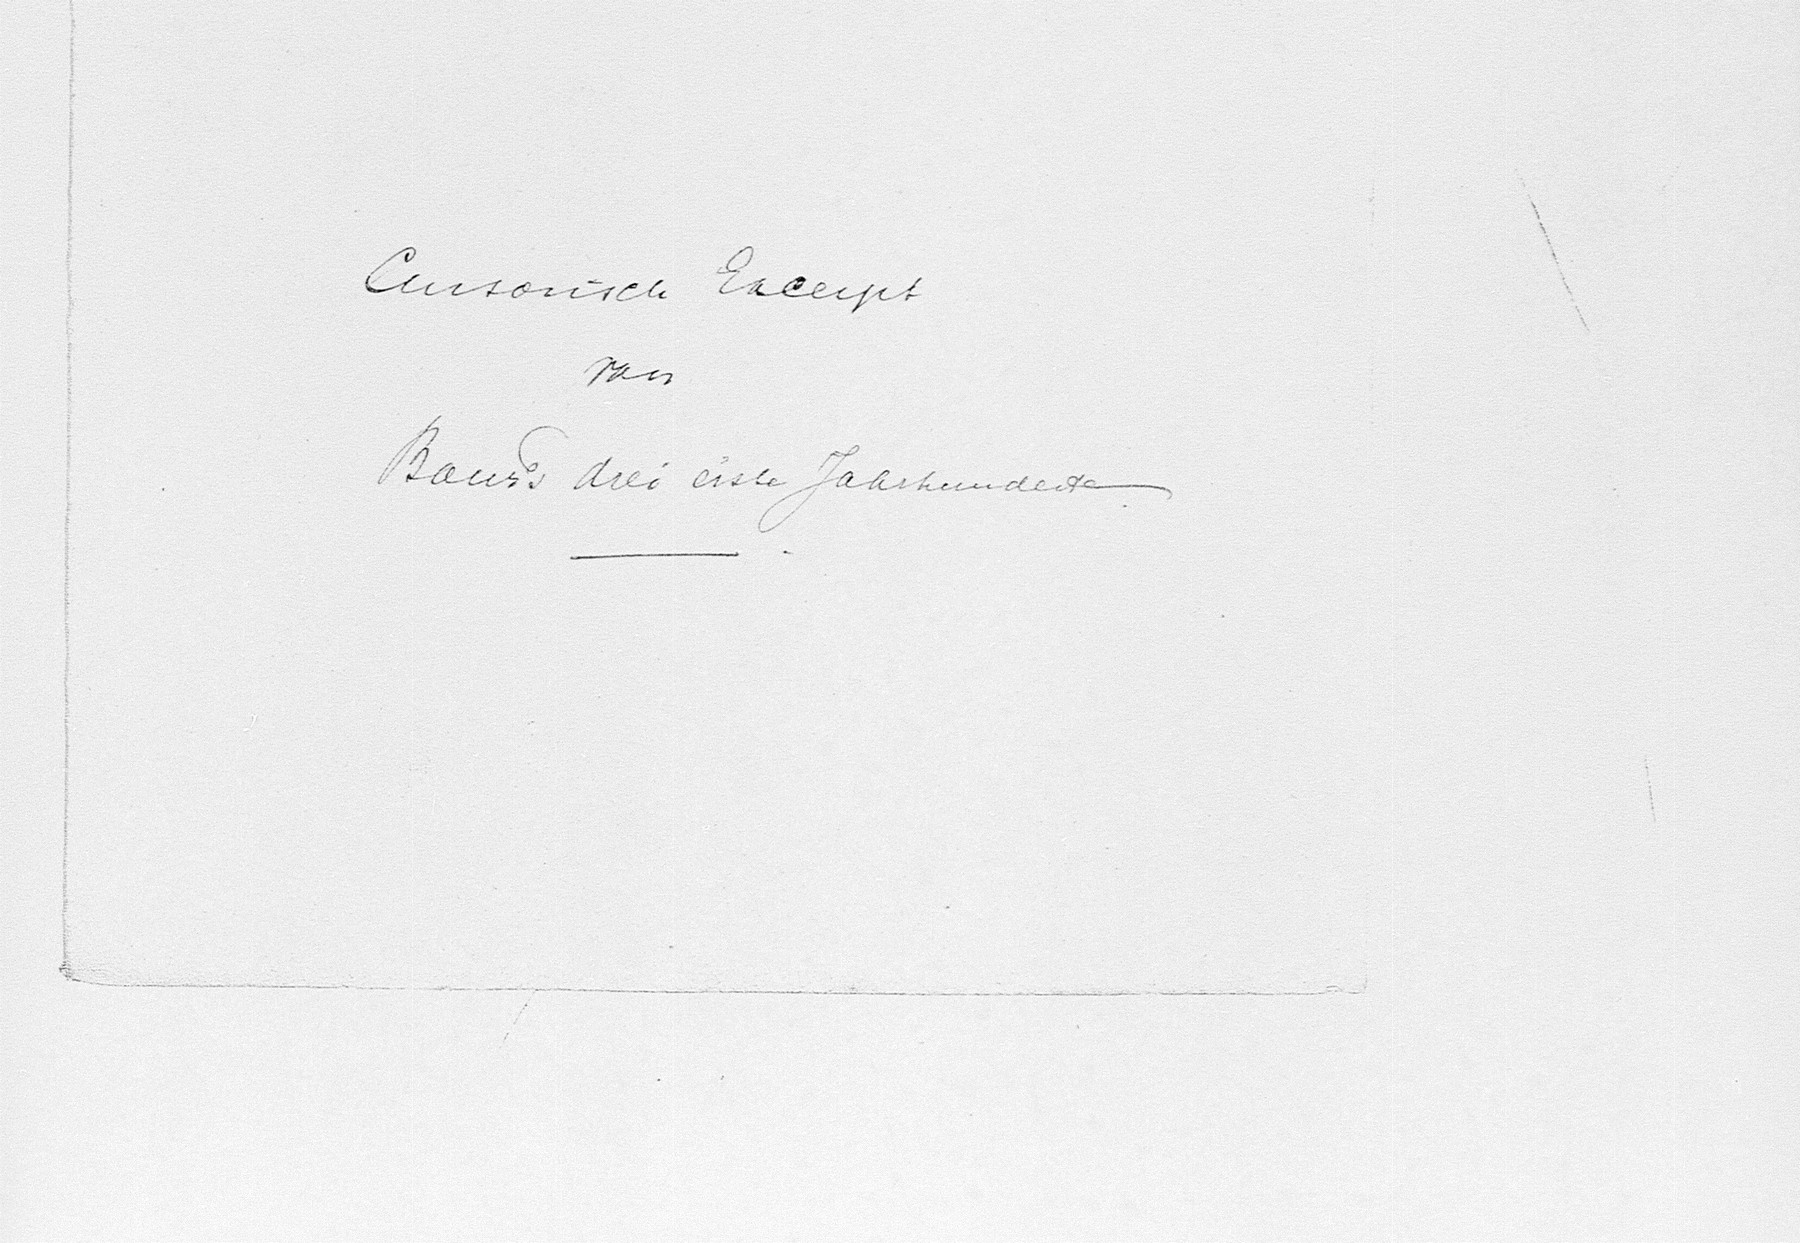 Cursorisch Excerpt
van
Baur's drei erste Jahrhunderte